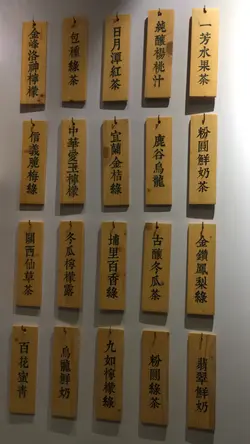 一芳水果茶
純釀楊桃汁
日月潭紅茶
包種綠茶
金峰洛神檸檬
粉圓鮮奶茶
鹿谷烏龍
宜蘭金桔綠
中華愛玉檸檬
信義脆梅綠
金鑽鳳梨綠
古釀冬瓜茶
埔里百香綠
冬瓜檸檬露
關西仙草茶
翡翠鮮奶
粉圓綠茶
九如檸檬綠
烏龍鮮奶
百花蜜青